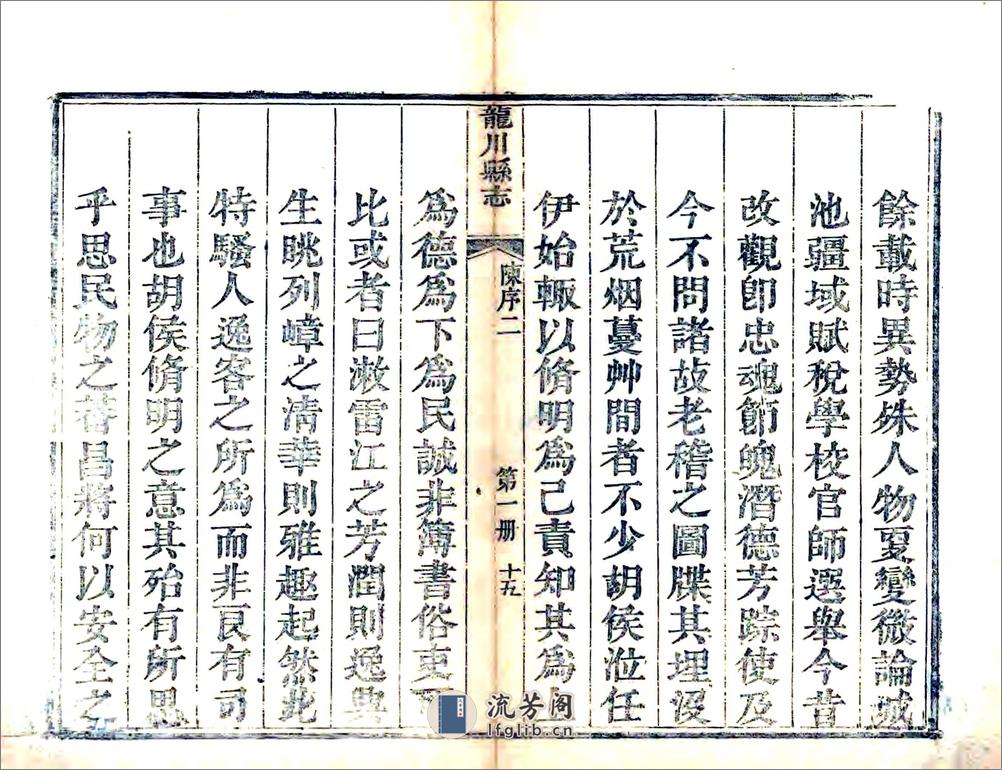 餘載時異勢殊人物叓變微論城
池疆域賦稅學校官師選舉今昔
改觀卽忠魂節魄潛德芳踪使及
今不問諸故老稽之圖牒其埋沒
於荒烟蔓艸間者不少胡侯涖任
伊始輙以脩明爲己責知其爲
龍川縣志
陳序二
第一册
十五
爲德爲下爲民誠非簿書俗吏
比或者曰漱雷江之芳潤則逸興
生眺列嶂之清華則雅趣起然此
特騷人逸客之所爲而非良有司
事也胡侯脩明之意其殆有所思
乎思民物之蕃昌將何以安全之
流芳阁
lfglib.cn